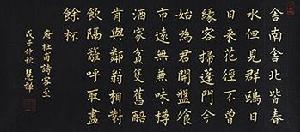 舍南舍北皆春
水但見群鷗日
日來花徑不曾
緣客掃蓬門今
始為君開盤飧
市遠無兼味樽
酒家貧隻舊醅
肯與鄰翁相對
飲隔籬呼取盡
餘杯
唐杜甫詩客至
戊子仲秋